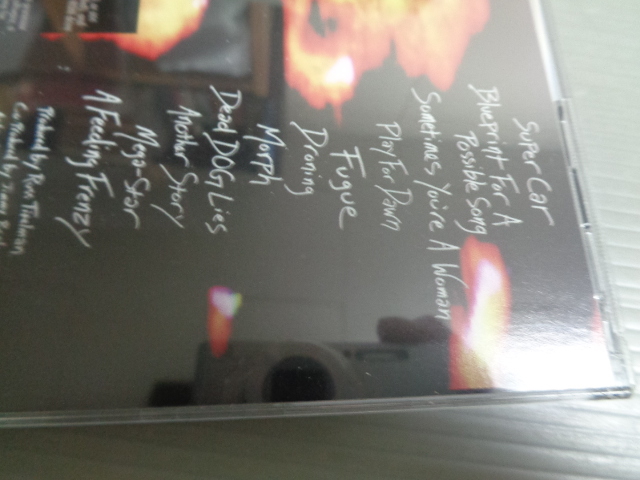 Super Car
Blueprint For A
Possible Song
Sometimes You're A Woman
Play For Dawn
Fugue
Droning
Morph
Dead DOG Lies
Another Story
Mega-Star
A Feeding Frenzy
Produced by
Co-Produced by